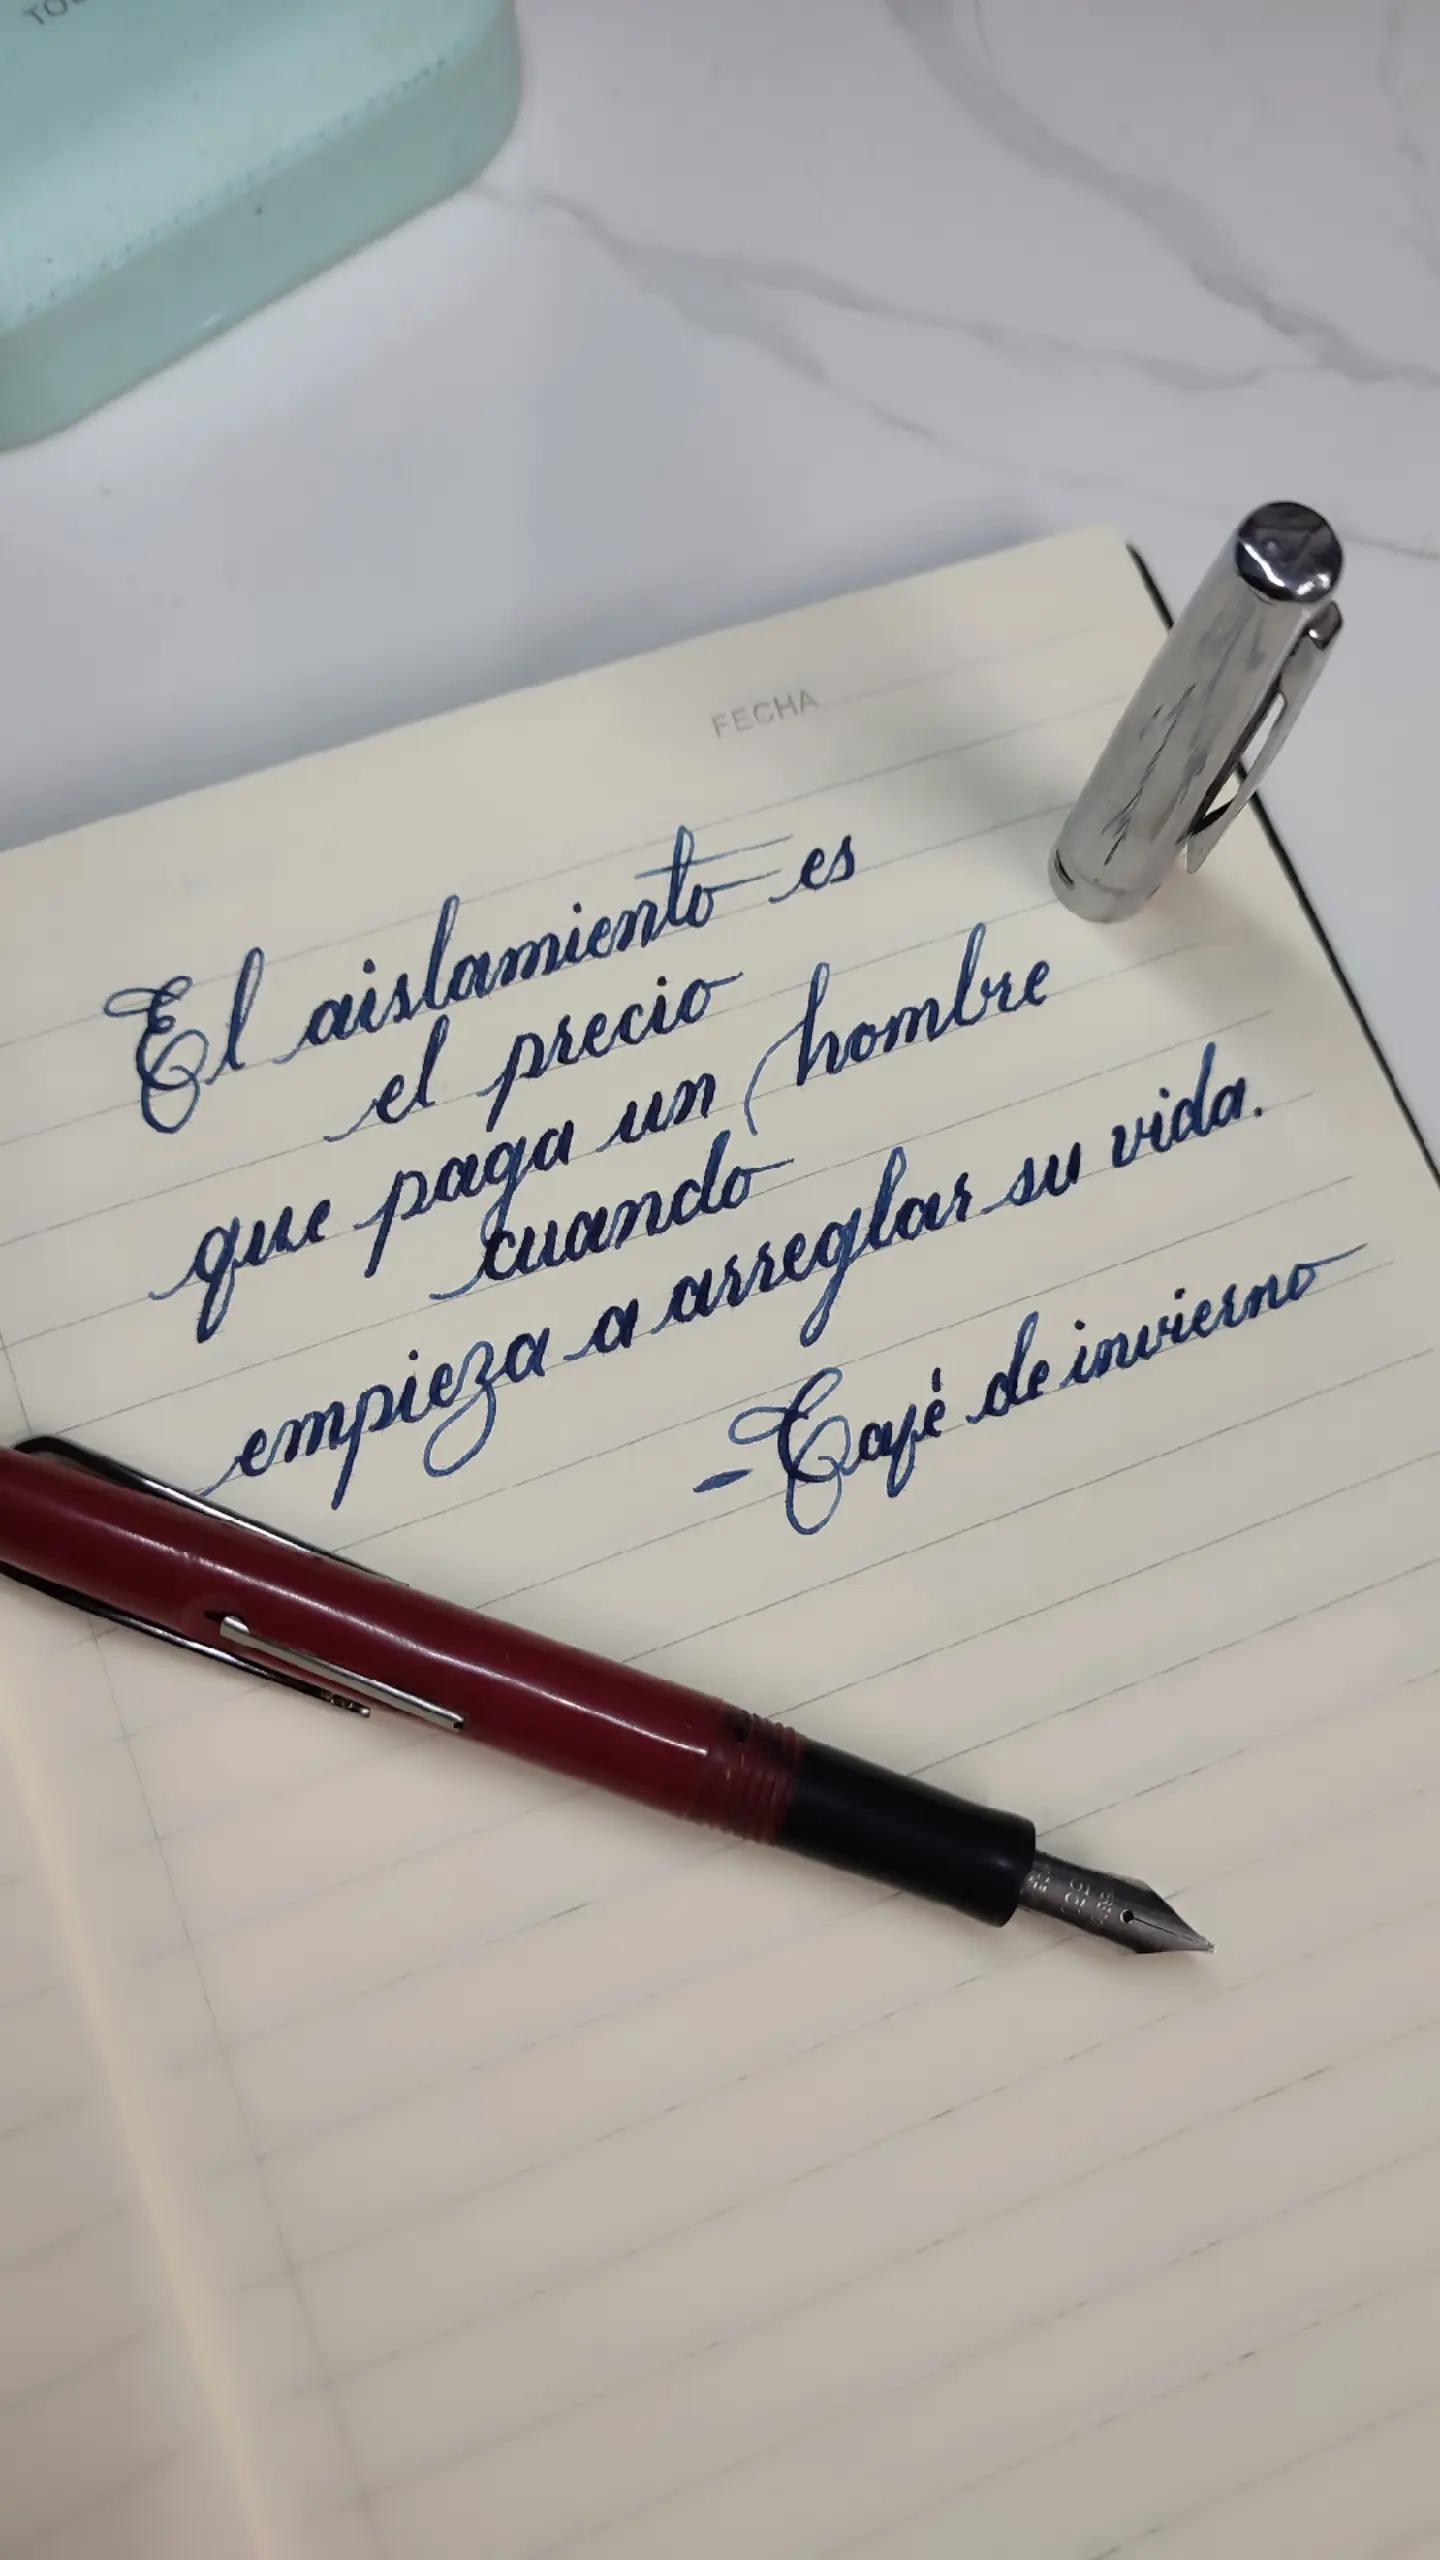 FECHA
El aislamiento es
el precio
que paga un hombre
cuando
empieza a arreglar su vida.
-Café de invierno